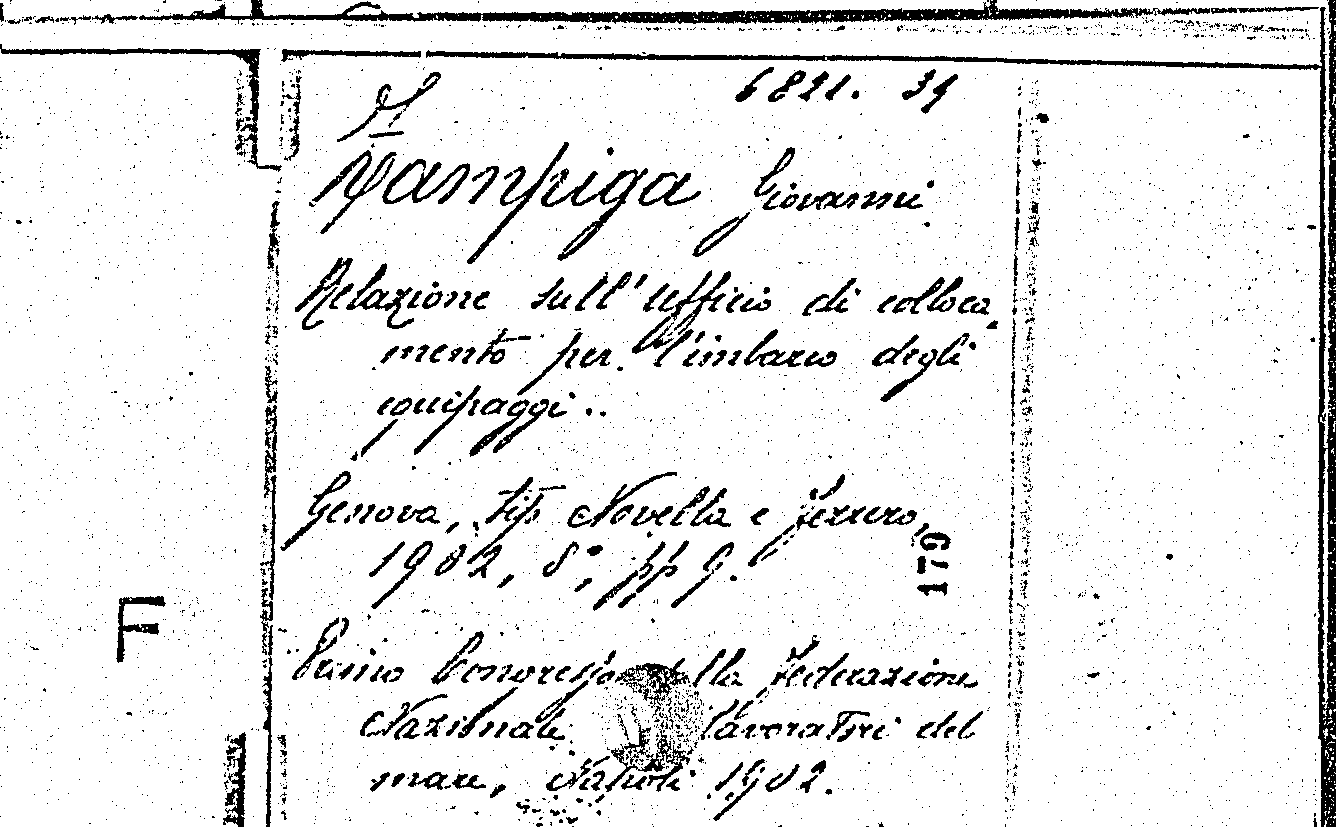 6821. 39
Giovanni
Relazione sull'Ufficio di colloca
mento per l'imbarco degli
equipaggi..
Genova, tip Novella e Ferrero,
1902, 8°, pp 9.
179
F
Primo Congresso della Federazione
Nazionale lavoratori del
mare, Napoli 1902.